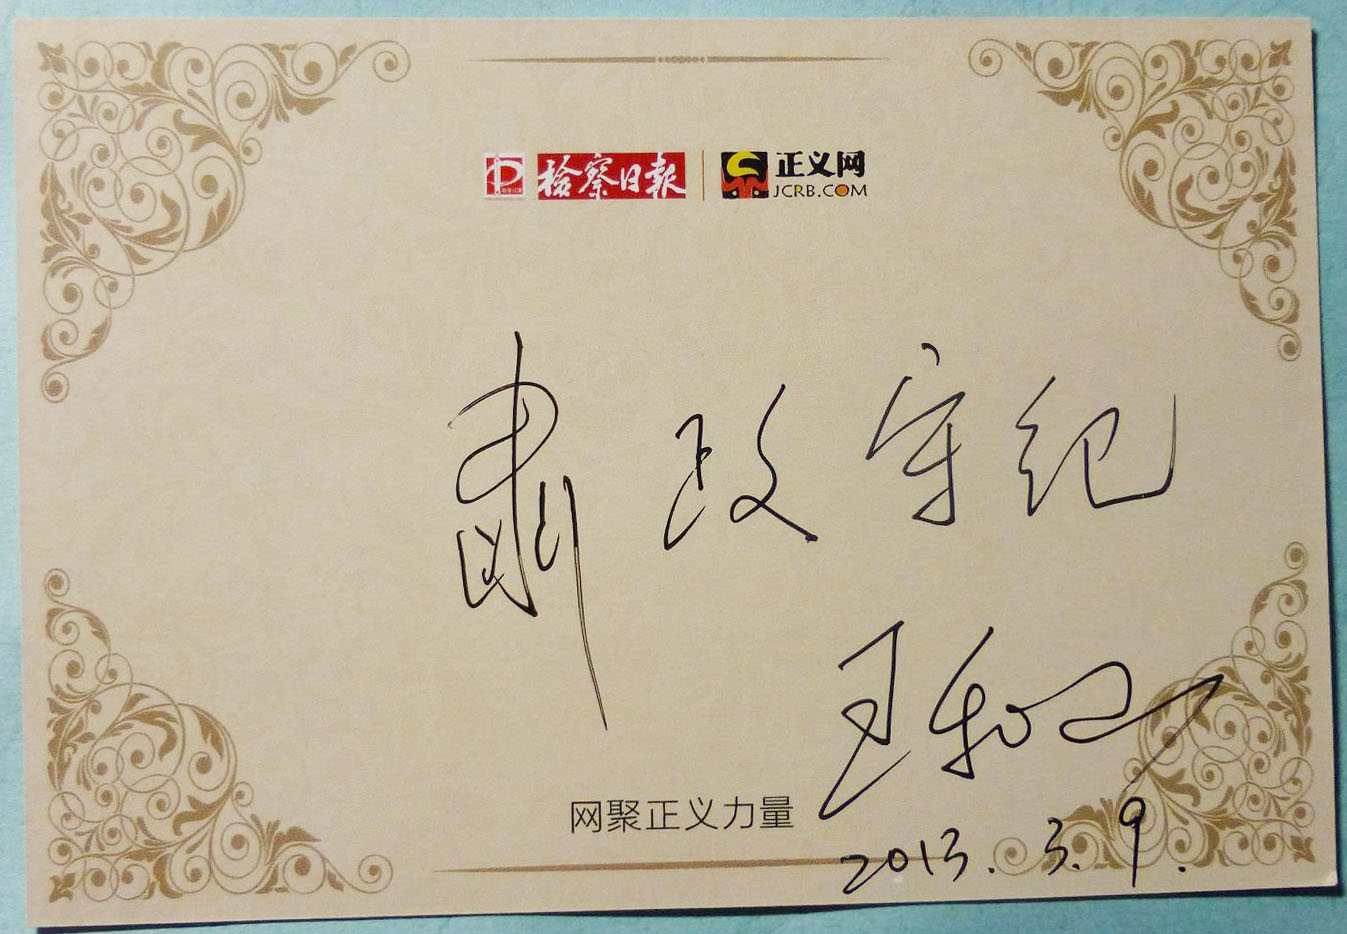 检察日报 正义网
JCRB.COM
肃政守纪
王和山
网聚正义力量
2013.3.9.